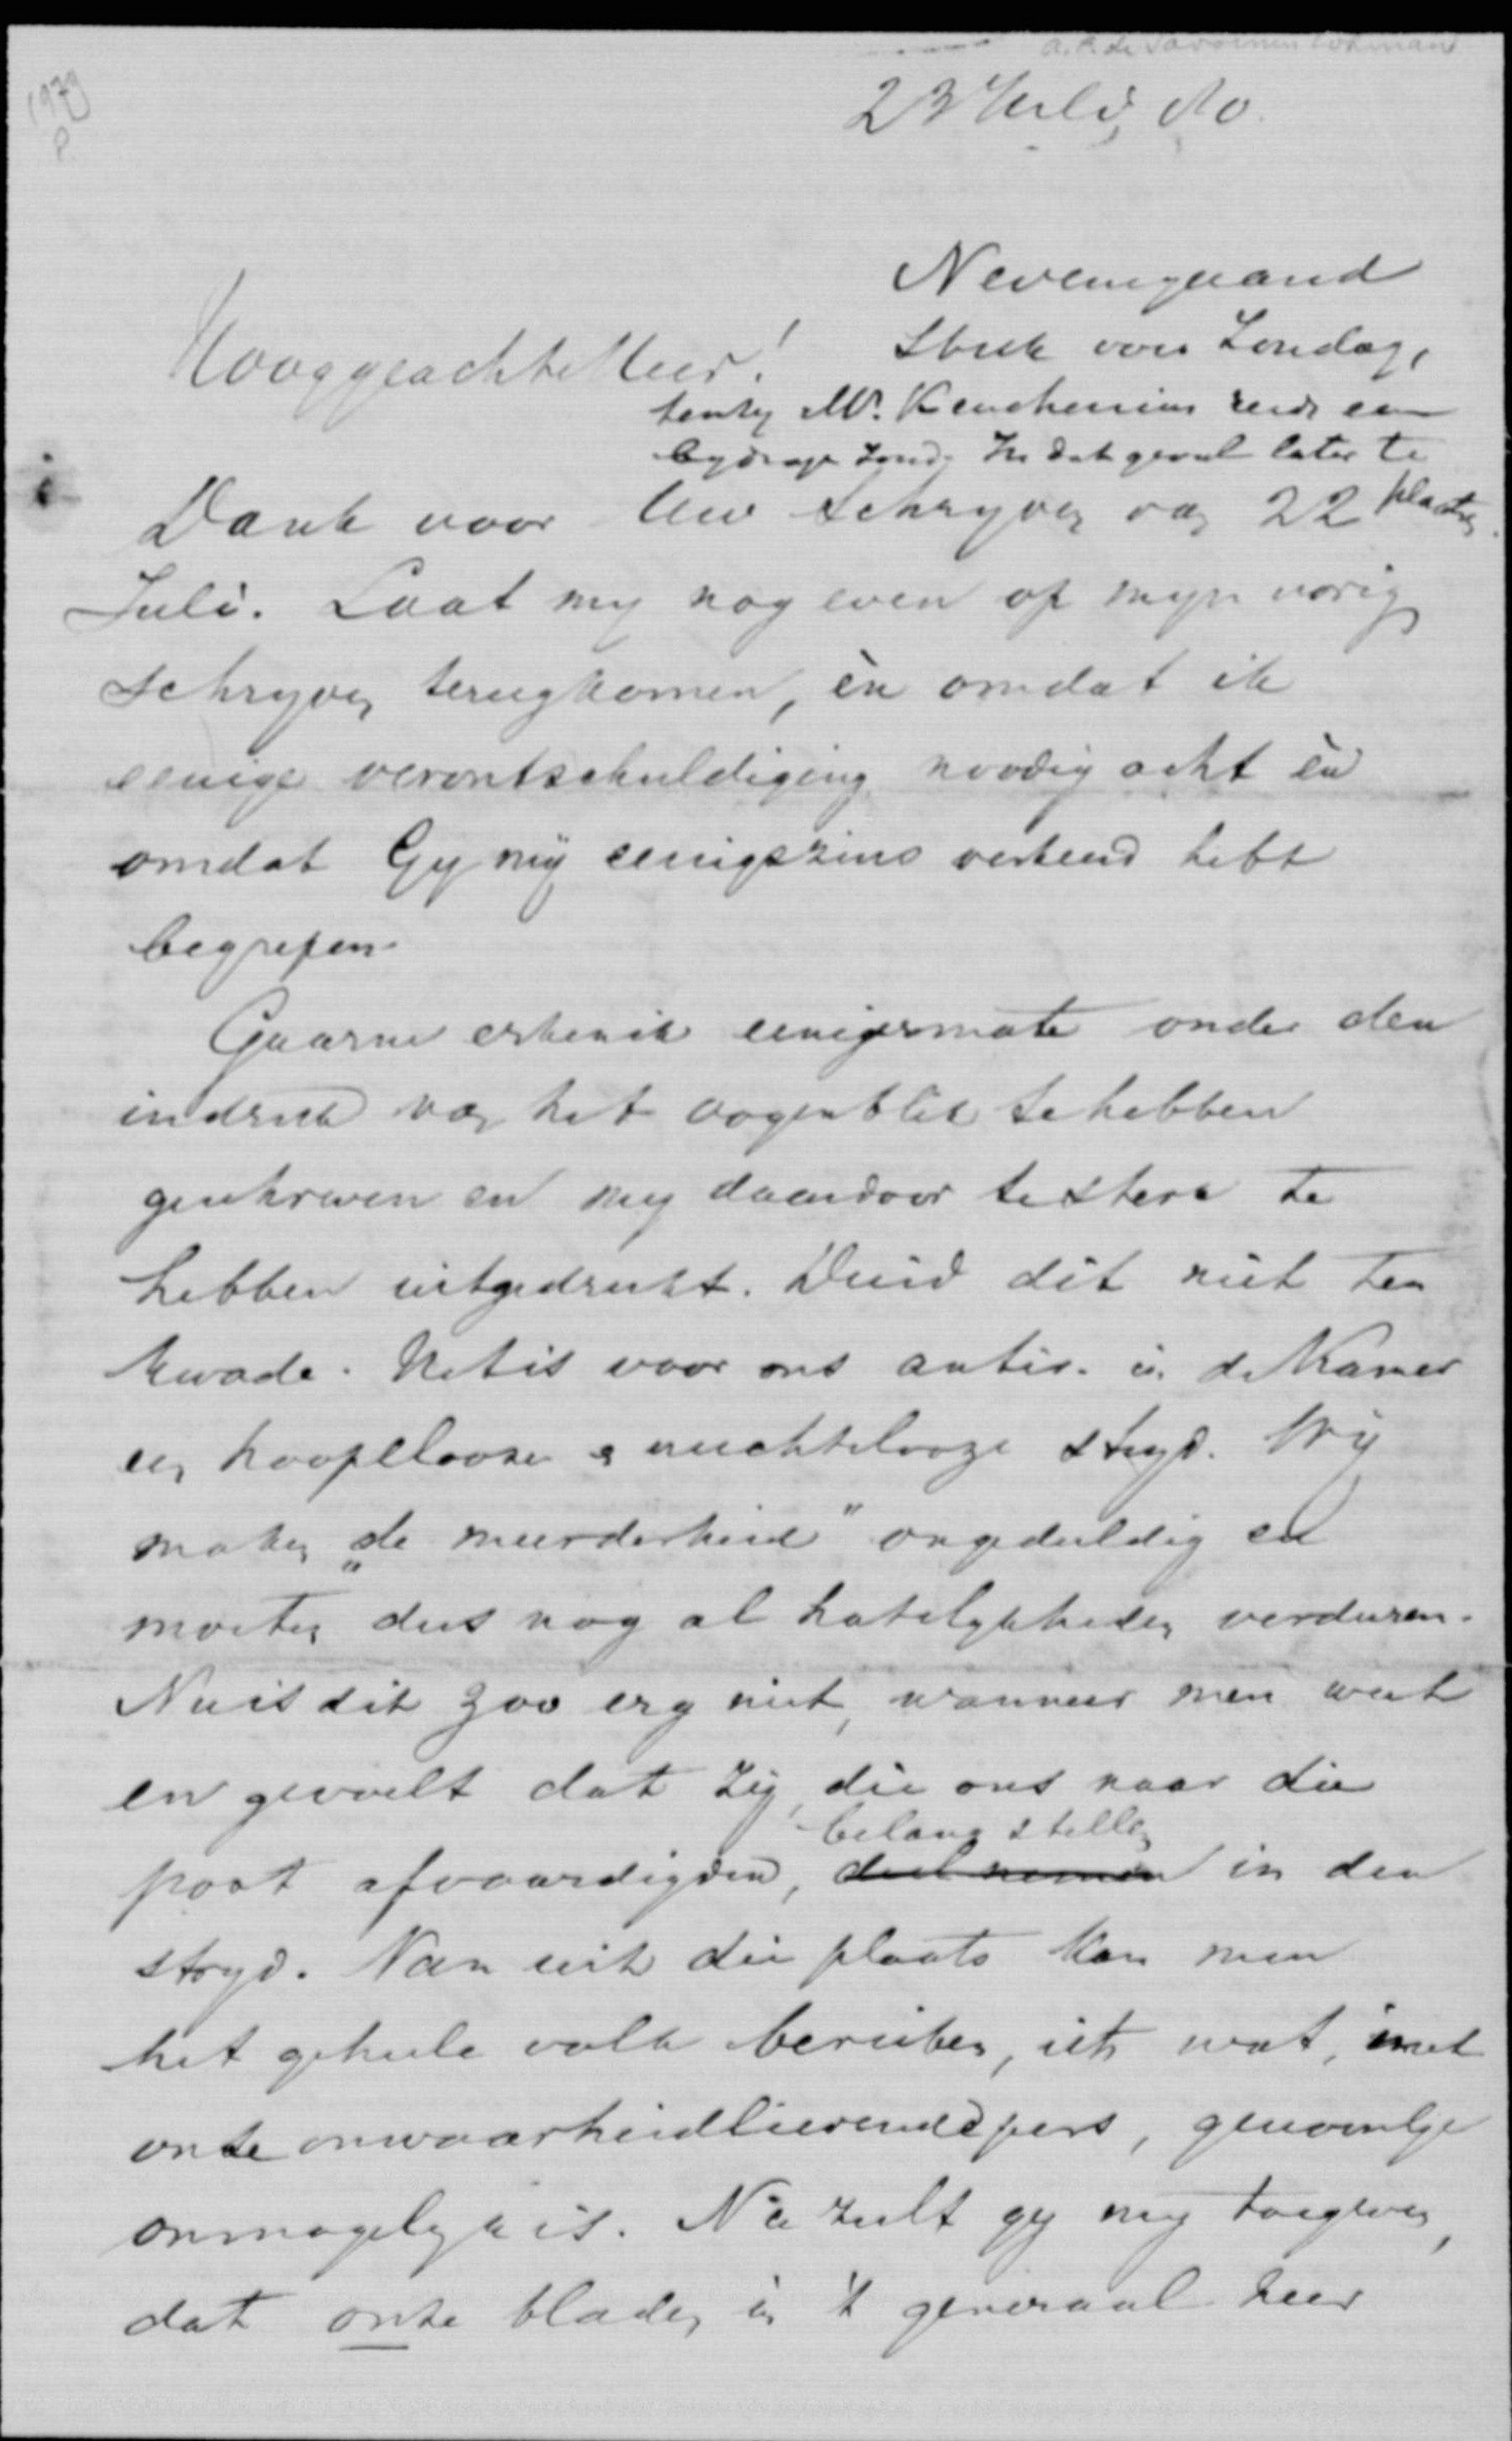 1979
P
A. F. de Savornin Lohman
23 Juli, 80.
Nevensgaand
Stuk voor Zondag,
tenzy Mr. Keuchenius reeds een
bydrage zond. In dat geval later te
plaatsen.
Hooggeachte Heer!
Dank voor Uw schryven van 22
Juli. Laat my nog even op myn vorig
schryven terugkomen, èn omdat ik
eenige verontschuldiging noodig acht èn
omdat Gy mij eenigszins verkeerd hebt
begrepen.
Gaarne erken ik eenigermate onder den
indruk van het oogenblik te hebben
geschreven en my daardoor te sterk te
hebben uitgedrukt. Duid dit niet ten
kwade. Het is voor ons antir. in de Kamer
een hooplooze en vruchtelooze stryd. Wij
maken „de meerderheid" ongeduldig en
moeten dus nog al hatelykheden verduren.
Nu is dit zoo erg niet, wanneer men weet
en gevoelt dat zij, die ons naar die
belang stellen
post afvaardigden, deel nemen in den
stryd. Van uit die plaats kan men
het geheele volk bereiken, iets wat, met
onze onwaarheidlievende pers, genoegelyk
onmogelyk is. Nu zult gy my toegeven,
dat onze bladen in 't generaal zeer